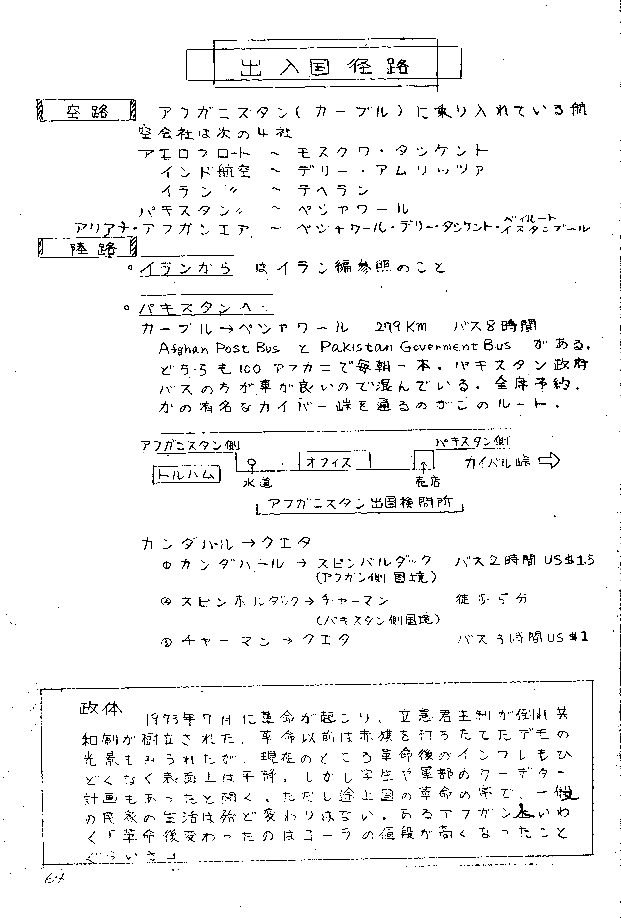 出入国径路
空路 アフガニスタン(カーブル)に乗り入れている航
空会社は次の4社
アエロフロート ～ モスクワ・タシケント
インド航空 ～ デリー・アムリッツァ
イラン 〃 ～ テヘラン
パキスタン〃 ～ ペシャワール
アリアナ・アフガンエア ～ ペシャワール・デリー・タシケント・ベイルート イスタンブール
陸路
。イランから はイラン編参照のこと
。パキスタンへ・
カーブル→ペシャワール 299Km バス8時間
Afghan Post Bus と Pakistan Goverment Bus がある。
どちらも100アフガニで毎朝一本。パキスタン政府
バスの方が車が良いので混んでいる。全席予約。
かの有名なカイバー峠を通るのがこのルート。
アフガニスタン側 パキスタン側
トルハム オフィス カイバル峠
水道 売店
アフガニスタン出国検問所
カンダハール→クエタ
① カンダハール → スピンバルダック バス2時間 US$1.5
(アフガン側国境)
② スピンボルダック→チャーマン 徒歩5分
(パキスタン側国境)
③ チャーマン→クエタ バス3時間 US$1
政体
1973年7月に革命が起こり、立憲君主制が倒れ共
和制が樹立された。革命以前は赤旗を打ちたてたデモの
光景もみられたが、現在のところ革命後のインフレもひ
どくなく表面上は平静。しかし学生や軍部のクーデター
計画もあったと聞く。ただし途上国の革命の常で、一般
の民衆の生活は殆ど変わりはない。あるアフガン人いわ
く「革命後変わったのはコーラの値段が高くなったこと
ぐらいさ」
64